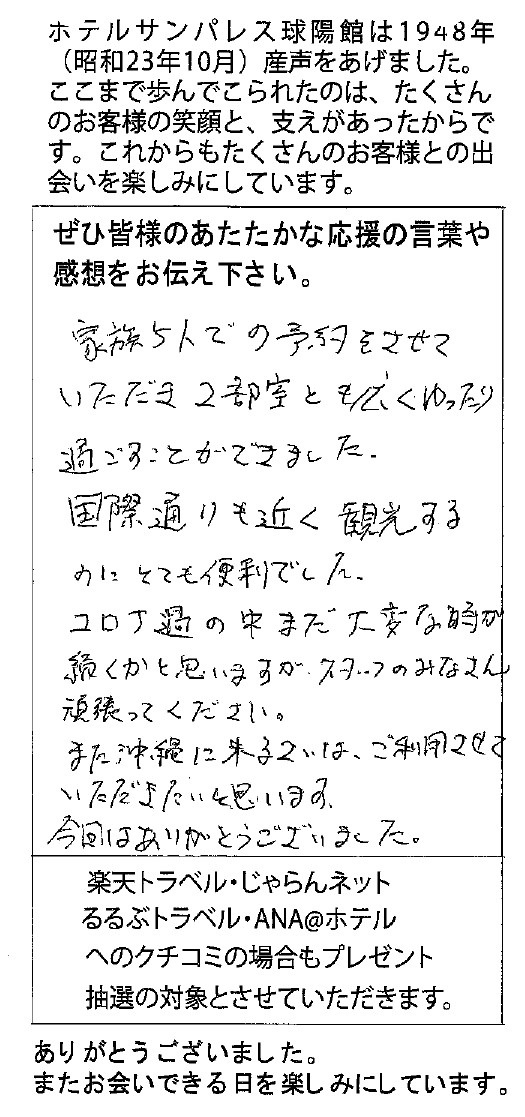 ホテルサンパレス球陽館は1948年
(昭和23年10月)産声をあげました。
ここまで歩んでこられたのは、たくさん
のお客様の笑顔と、支えがあったからで
す。これからもたくさんのお客様との出
会いを楽しみにしています。
ぜひ皆様のあたたかな応援の言葉や
感想をお伝え下さい。
家族5人での予約をさせて
いただき2部室とも広くゆったり
過ごすことができました。
国際通りも近く観光する
のにとても便利でした。
コロナ過の中まだ大変な時が
続くかと思いますが、スタッフのみなさん
頑張ってください。
また沖縄に来るさいは、ご利用させて
いただきたいと思います。
今回はありがとうございました。
楽天トラベル・じゃらんネット
るるぶトラベル・ANA@ホテル
へのクチコミの場合もプレゼント
抽選の対象とさせていただきます。
ありがとうございました。
またお会いできる日を楽しみにしています。